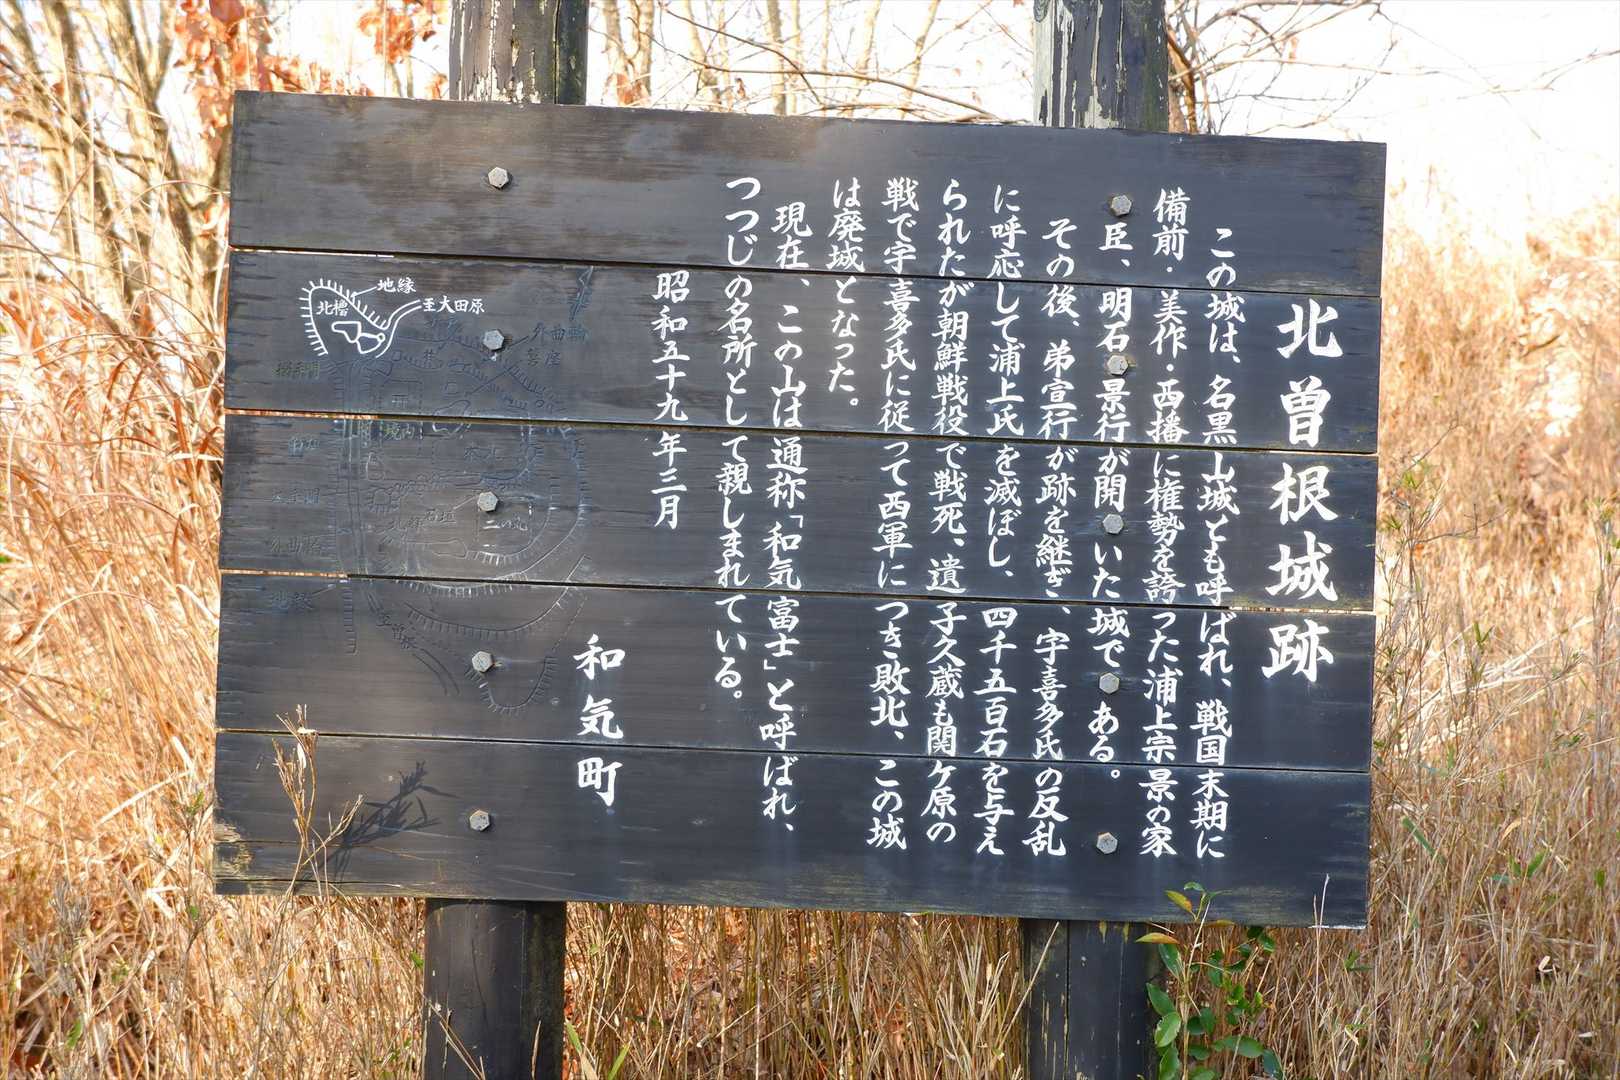 北曽根城跡
この城は、名黒山城とも呼ばれ、戦国末期に
備前・美作・西播に権勢を誇った浦上宗景の家
臣、明石景行が開いた城である。
その後、弟宣行が跡を継ぎ、宇喜多氏の反乱
に呼応して浦上氏を滅ぼし、四千五百石を与え
られたが朝鮮戦役で戦死、遺子久蔵も関ケ原の
戦で宇喜多氏に従って西軍につき敗北、この城
は廃城となった。
現在、この山は通称「和気富士」と呼ばれ、
つつじの名所として親しまれている。
昭和五十九年三月
和気町
地縁
北櫓
至大田原
外曲輪
境内
石垣
二の丸
外曲輪
地縁